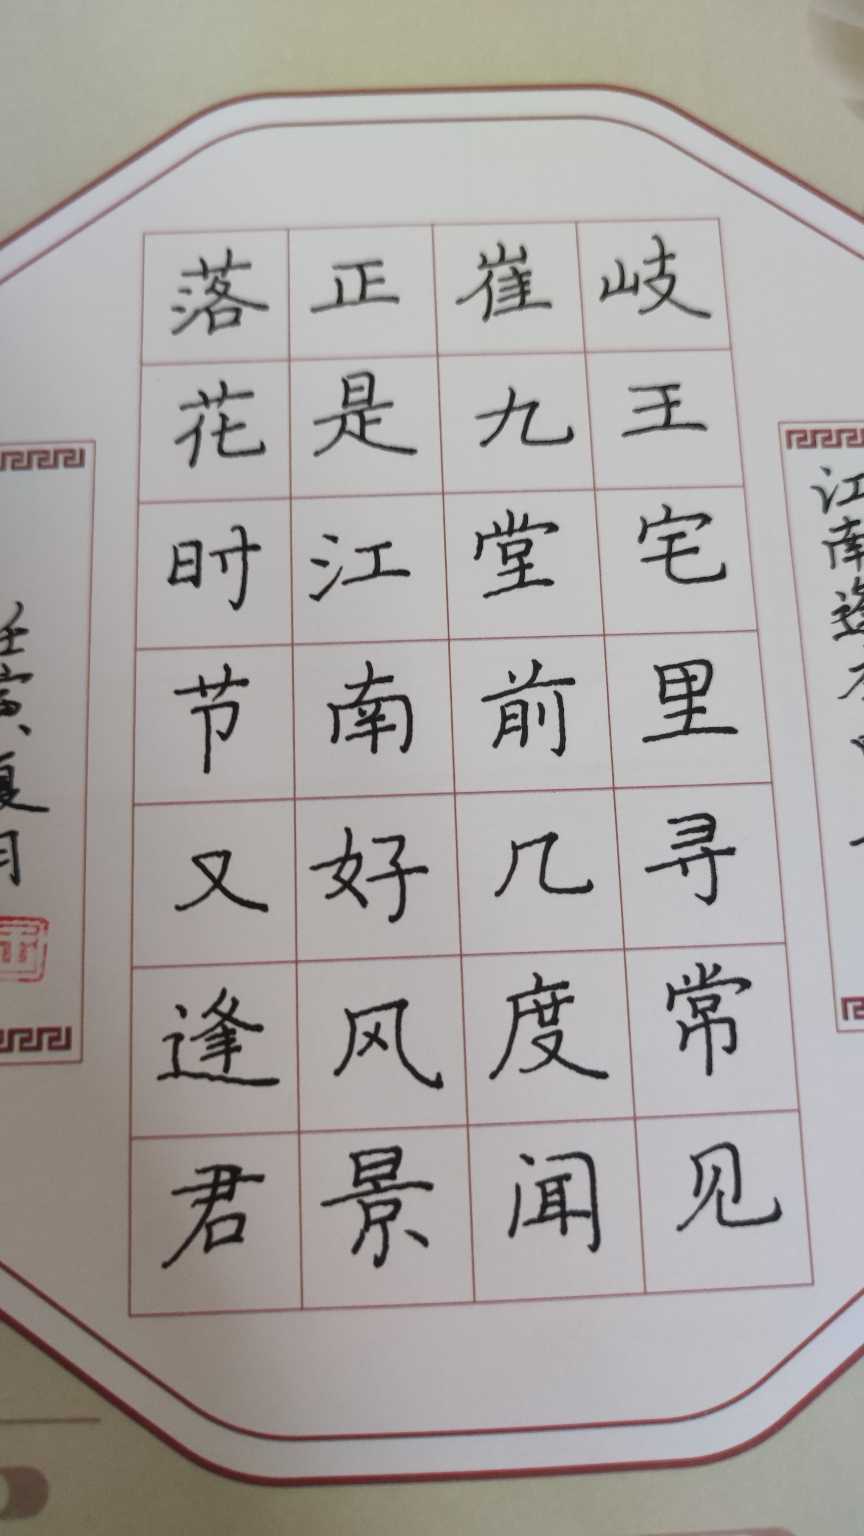 江南逢李
岐王宅里寻常见
崔九堂前几度闻
正是江南好风景
落花时节又逢君
壬寅夏月